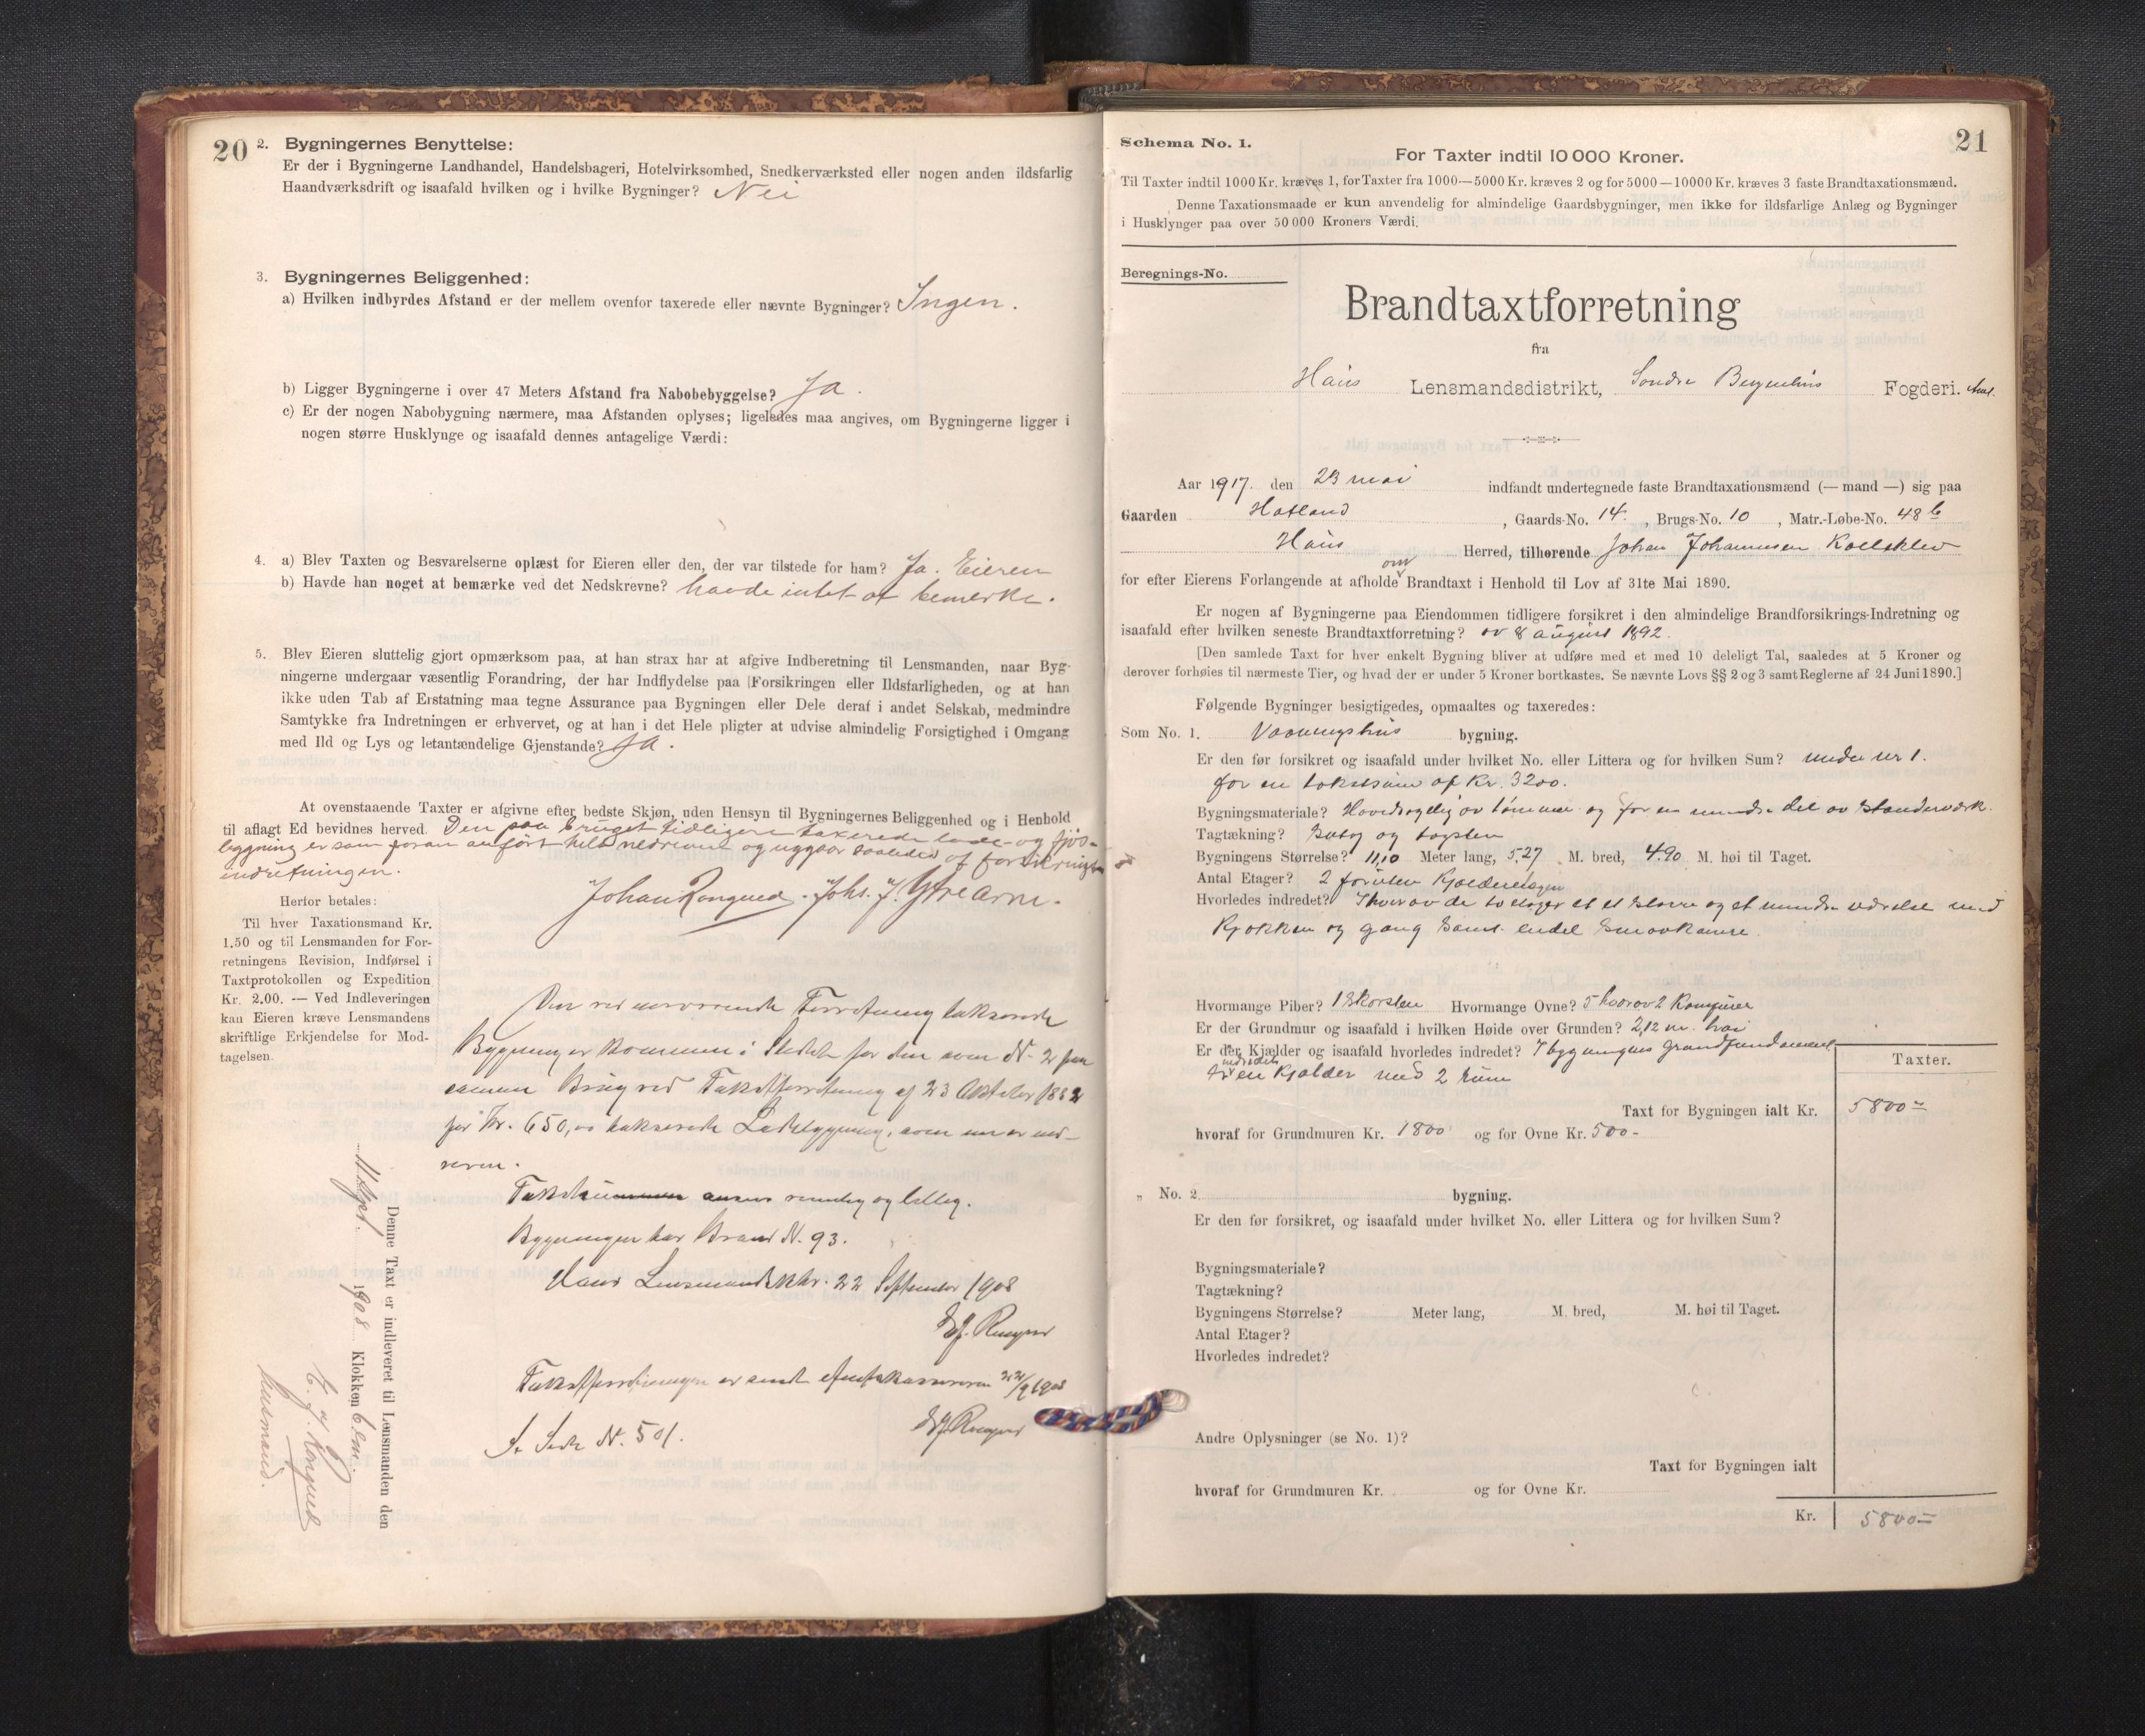 20
2. Bygningernes Benyttelse:
Er der i Bygningerne Landhandel, Handelsbageri, Hotelvirksomhed, Snedkerværksted eller nogen anden ildsfarlig
Haandværksdrift og isaafald hvilken og i hvilke Bygninger? Nei
3. Bygningernes Beliggenhed:
a) Hvilken indbyrdes Afstand er der mellem ovenfor taxerede eller nævnte Bygninger? Ingen.
b) Ligger Bygningerne i over 47 Meters Afstand fra Nabobebyggelse? Ja.
c) Er der nogen Nabobygning nærmere, maa Afstanden oplyses; ligeledes maa angives, om Bygningerne ligger i
nogen større Husklynge og isaafald dennes antagelige Værdi:
4. a) Blev Taxten og Besvarelserne oplæst for Eieren eller den, der var tilstede for ham? Ja. Eieren
b) Havde han noget at bemærke ved det Nedskrevne? havde intet at bemerke.
5. Blev Eieren sluttelig gjort opmærksom paa, at han strax har at afgive Indberetning til Lensmanden, naar Byg-
ningerne undergaar væsentlig Forandring, der har Indflydelse paa Forsikringen eller Ildsfarligheden, og at han
ikke uden Tab af Erstatning maa tegne Assurance paa Bygningen eller Dele deraf i andet Selskab, medmindre
Samtykke fra Indretningen er erhvervet, og at han i det Hele pligter at udvise almindelig Forsigtighed i Omgang
med Ild og Lys og letantændelige Gjenstande? Ja.
At ovenstaaende Taxter er afgivne efter bedste Skjøn, uden Hensyn til Bygningernes Beliggenhed og i Henhold
til aflagt Ed bevidnes herved. Den paa bruget tidligere taxerede lade- og fjøs-
bygning er som foran anført helt nedrevne og udgaar saaledes af forsikrings
indretningen.
Johan Rongved. Johs. J.
Herfor betales:
Til hver Taxationsmand Kr.
1.50 og til Lensmanden for For-
retningens Revision, Indførsel i
Taxtprotokollen og Expedition
Kr. 2.00. — Ved Indleveringen
kan Eieren kræve Lensmandens
skriftlige Erkjendelse for Mod-
tagelsen.
Den ved nærværende Forretning takserede
Bygning er kommen i Stedet for den som N. 2 paa
samme Brug ved Takstforretning af 23 Oktober
for Kr. 650,00 takserede Ladebygning, som nu er ned-
reven.
Takstsummen ansees rimelig og billig.
Bygningen har Brand N. 93.
Haus Lensmandsktr. 22 September 1908
Takstforretningen er sendt 22/9 1908
Se Side N. 501.
Denne Taxt er indleveret til Lensmanden den
11 Sept. 1908 Klokken 6 em.
lensmand.
21
Schema No. 1.
For Taxter indtil 10 000 Kroner.
Til Taxter indtil 1000 Kr. kræves 1, for Taxter fra 1000—5000 Kr. kræves 2 og for 5000—10000 Kr. kræves 3 faste Brandtaxationsmænd.
Denne Taxationsmaade er kun anvendelig for almindelige Gaardsbygninger, men ikke for ildsfarlige Anlæg og Bygninger
i Husklynger paa over 50 000 Kroners Værdi.
Beregnings-No.
Brandtaxtforretning
fra
Haus Lensmandsdistrikt, Søndre Bergenhus Fogderi. Amt.
Aar 1917. den 23 mai indfandt undertegnede faste Brandtaxationsmænd (— mand —) sig paa
Gaarden Hatland, Gaards-No. 14, Brugs-No. 10, Matr.-Løbe-No. 48 b
Haus Herred, tilhørende Johan Johannesen
for efter Eierens Forlangende at afholde om Brandtaxt i Henhold til Lov af 31te Mai 1890.
Er nogen af Bygningerne paa Eiendommen tidligere forsikret i den almindelige Brandforsikrings-Indretning og
isaafald efter hvilken seneste Brandtaxtforretning? av 8 august 1892.
[Den samlede Taxt for hver enkelt Bygning bliver at udføre med et med 10 deleligt Tal, saaledes at 5 Kroner og
derover forhøies til nærmeste Tier, og hvad der er under 5 Kroner bortkastes. Se nævnte Lovs §§ 2 og 3 samt Reglerne af 24 Juni 1890.]
Følgende Bygninger besigtigedes, opmaaltes og taxeredes:
Som No. 1. Vaaningshus bygning.
Er den før forsikret og isaafald under hvilket No. eller Littera og for hvilken Sum? under nr 1.
for en takstsum af Kr. 3200.
Bygningsmateriale? Hovedsagelig av tømmer og for en mindre del av standerverk.
Tagtækning? og tagsten
Bygningens Størrelse? 11,10 Meter lang, 5,27 M. bred, 4.90 M. høi til Taget.
Antal Etager? 2 foruten Kjælderetagen
Hvorledes indredet? I hver av de to etager et et større og et mindre værelse med
Kjøkken og gang samt endel smaakamre.
Hvormange Piber? 1 Skorsten Hvormange Ovne? 5 hvorav 2 Komfurer
Er der Grundmur og isaafald i hvilken Høide over Grunden? 2,12 m. høi
Er der Kjælder og isaafald hvorledes indredet? I bygningens grundfundament
er indredet en Kjælder med 2 rum
Taxter.
Taxt for Bygningen ialt Kr. 5800=
hvoraf for Grundmuren Kr. 1800 og for Ovne Kr. 500-
„ No. 2 bygning.
Er den før forsikret, og isaafald under hvilket No. eller Littera og for hvilken Sum?
Bygningsmateriale?
Tagtækning?
Bygningens Størrelse? Meter lang, M. bred, M. høi til Taget.
Antal Etager?
Hvorledes indredet?
Andre Oplysninger (se No. 1)?
Taxt for Bygningen ialt
hvoraf for Grundmuren Kr. og for Ovne Kr.
Kr. 5800=